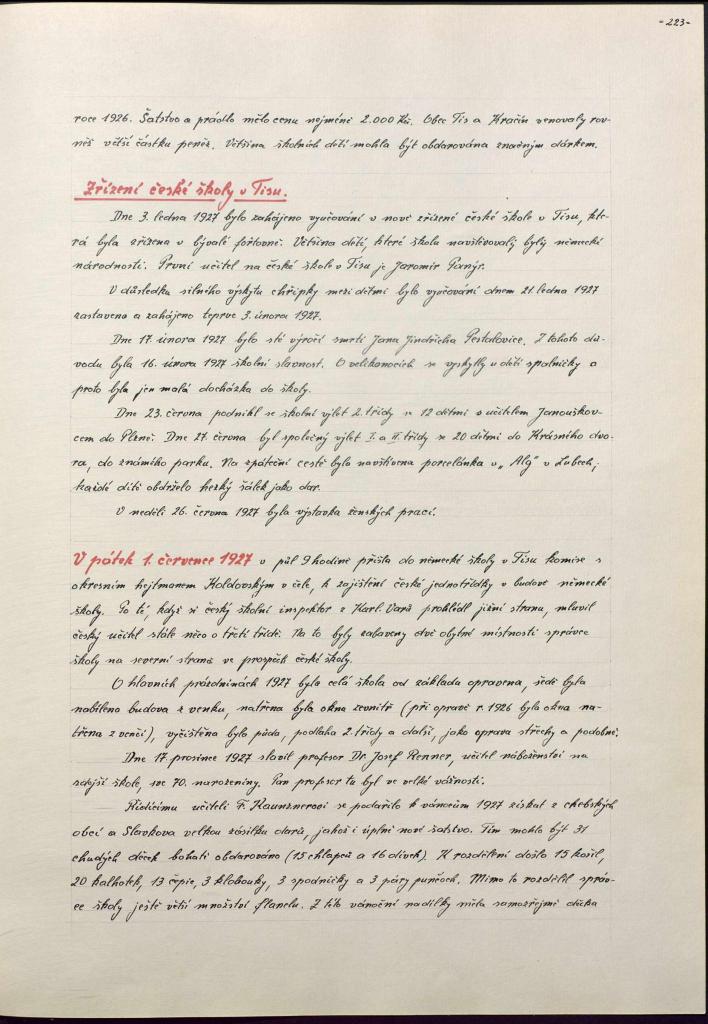 -223-
roce 1926. Šatstvo a prádlo mělo cenu nejméně 2.000 Kč. Obec Tis a Kračín venovaly rov-
něž větší částku peněz. Většina školních dětí mohla být obdarována značným dárkem.
Zřízení české školy v Tisu.
Dne 3. ledna 1927 bylo zahájeno vyučování v nově zřízené české škole v Tisu, kte-
rá byla zřízena v bývalé fořtovně. Většina dětí, které školu navštivovaly byly německé
národnosti. První učitel na české škole v Tisu je Jaromír Panýr.
V důsledku silného výskytu chřipky mezi dětmi bylo vyučování dnem 21. ledna 1927
zastaveno a zahájeno teprve 3. února 1927.
Dne 17. února 1927 bylo sté výročí smrti Jana Jindřicha Pestalovice. Z tohoto dů-
vodu byla 16. února 1927 školní slavnost. O velikonocích se vyskytly u dětí spalničky a
proto byla jen malá docházka do školy.
Dne 23. června podnikl se školní výlet 2. třídy se 12 dětmi s učitelem Janouškov-
cem do Plzně. Dne 27. června byl společný výlet I. a II. třídy se 20 dětmi do Krásného dvo-
ra, do známého parku. Na zpáteční cestě byla navštívena porcelánka v „Alp" v Lubech,
každé dítě obdrželo hezký šálek jako dar.
V neděli 26. června 1927 byla výstavka ženských prací.
V pátek 1. července 1927 v půl 9 hodině přišla do německé školy v Tisu komise s
okresním hejtmanem Holdovským v čele, k zajištění české jednotřídky v budově německé
školy. Po té, když si český školní inspektor z Karl. Varů prohlédl jižní stranu, mluvil
český učitel stále něco o třetí třídě. Na to byly zabaveny dvě obytné místnosti správce
školy na severní straně ve prospěch české školy.
O hlavních prázdninách 1927 byla celá škola od základu opravena, šedě byla
nabílena budova z venku, natřena byla okna zevnitř (při opravě r. 1926 byla okna na-
třena z venčí), vyčištěna byla půda, podlaha 2. třídy a další, jako oprava střechy a podobně.
Dne 17. prosince 1927 slavil profesor Dr. Josef Renner, učitel náboženství na
zdejší škole, své 70. narozeniny. Pan profesor tu byl ve velké vážnosti.
Řídícímu učiteli F. Kaunznerovi se podařilo k vánocům 1927 získat z chebských
obcí a Slavkova velkou zásilku darů, jakož i úplně nové šatstvo. Tím mohlo být 31
chudých dítek bohatě obdarováno (15 chlapců a 16 dívek). K rozdělení došlo 15 košil,
20 kalhotek, 13 čepic, 3 klobouky, 3 spodničky a 3 páry punčoch. Mimo to rozdělil správ-
ce školy ještě větší množství flanelu. Z této vánoční nadílky měla samozřejmě dítka